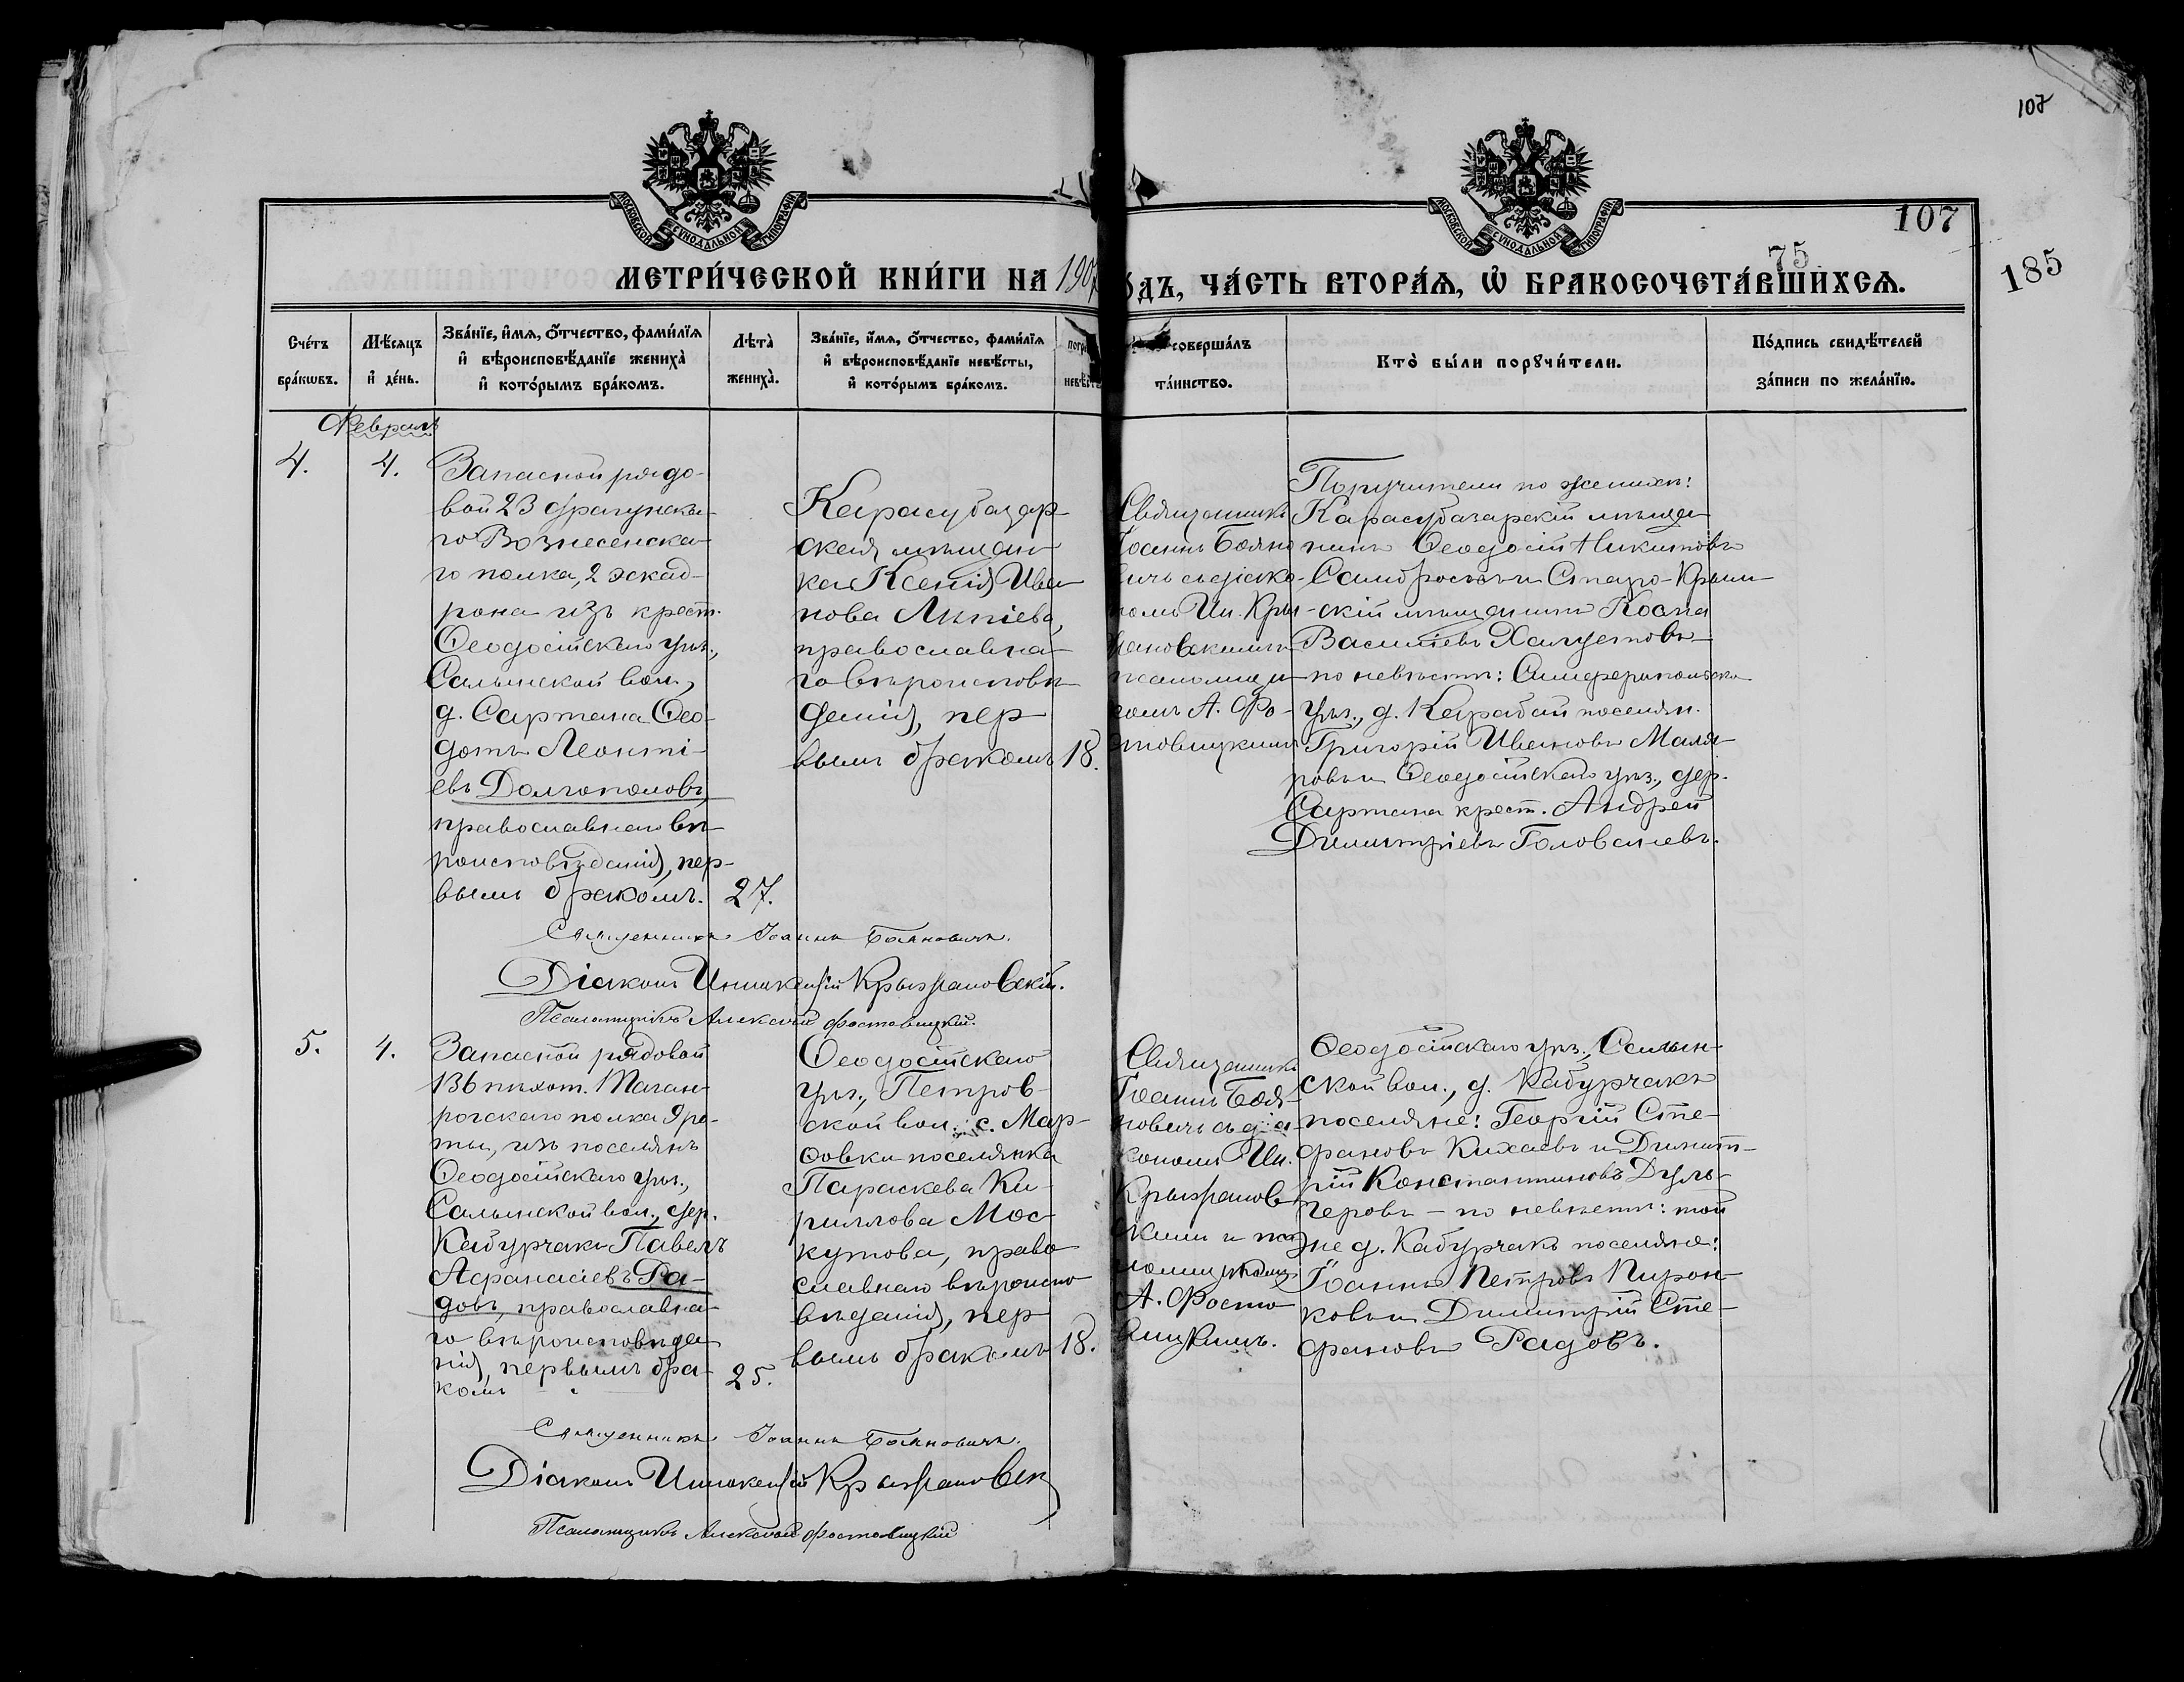 107
МОСКОВСКОЙ СѴНОДАЛЬНОЙ ТИПОГРАФІИ
МОСКОВСКОЙ СѴНОДАЛЬНОЙ ТИПОГРАФІИ
107
75
185
МЕТРИ́ЧЕСКОЙ КНИ́ГИ НА 1907
О́ДЪ, ЧА́СТЬ ВТОРА́Ѧ, Ѽ БРАКОСОЧЕТА́ВШИХСѦ.
Сче́тъ
бра́кѡвъ.
Мѣ́сѧцъ
и҆ де́нь.
Зва́нїе, и҆́мѧ, ѻ҆́тчество, фами́лїѧ
и҆ вѣроисповѣ́данїе жениха̀
и҆ кото́рымъ бра́комъ.
Лѣта̀
жениха̀.
Зва́нїе, и҆́мѧ, ѻ҆́тчество, фами́лїѧ
и҆ вѣроисповѣ́данїе невѣ́сты,
и҆ кото́рымъ бра́комъ.
невѣ́ст
соверша́лъ
та́инство.
Кто̀ бы́ли порꙋчи́тели.
По́дпись свидѣ́телей
за́писи по жела́нїю.
Февраль
4.
4.
Запасной рядо-
вой 23 драгунска-
го Вознесенска-
го полка, 2 эскад-
рона изъ крест.
Ѳеодосійскаго уѣз.,
Салынской вол.,
д. Сартана Ѳео-
дотъ Леонті-
евъ Долгополовъ,
православнаго вѣ-
роисповѣданія, пер-
вымъ бракомъ.
27.
Карасубазар-
ская мѣщан-
ка Ксенія Ива-
нова
православна-
го вѣроисповѣ-
данія, пер-
вымъ бракомъ
18.
Священникъ
Іоаннъ Бояно
вичъ съ діако-
номъ Ин. Кры-
жановскимъ и
псаломщи
комъ А. Фо-
стовицкимъ
Поручители по женихѣ:
Карасубазарскій мѣща-
нинъ Ѳеодосій Никитовъ
Самброс и Старо-Крым-
скій мѣщанинъ Косма
Василіевъ Халуетовъ
по невѣстѣ: Симферопольска
уѣз., д. Карабай поселян.
Григорій Ивановъ Маля-
ровъ и Ѳеодосійскаго уѣз., дер.
Сартана крест. Андрей
Димитріевъ Головачевъ.
Священникъ Іоаннъ Бояновичъ.
Діаконъ Иннокентій Крыжановскій.
Псаломщикъ Алексѣй Фостовицкій.
5.
4.
Запасной рядовой
136 пѣхот. Таган-
рогскаго полка 9 ро-
ты, изъ поселянъ
Ѳеодосійскаго уѣз.,
Салынской вол., дер.
Кабурчакъ Павелъ
Аѳанасіевъ Ра-
довъ, православна-
го вѣроисповѣда
нія, первымъ бра-
комъ
25.
Ѳеодосійскаго
уѣз., Петров-
ской вол. с. Мар-
ѳовки поселянка
Параскева Ки-
риллова Мос-
кутова, право
славнаго вѣроиспо
вѣданія, пер
вымъ бракомъ
18.
Священникъ
Іоаннъ Боя-
новичъ съ діа-
кономъ Ин.
Крыжанов-
скимъ и пса
ломщикомъ
А. Фосто-
вицкимъ.
Ѳеодосійскаго уѣз., Салын-
ской вол., д. Кабурчакъ
поселяне: Георгій Сте-
фановъ Кихаевъ и Димит-
рій Константиновъ Дуль-
геровъ – по невѣстѣ: той
же д. Кабурчакъ поселяне:
Іоаннъ Петровъ Пирон-
ковъ и Димитрій Сте-
фановъ Радовъ.
Священникъ Іоаннъ Бояновичъ.
Діаконъ Иннокентій Крыжановск
Псаломщикъ Алексѣй Фостовицкій